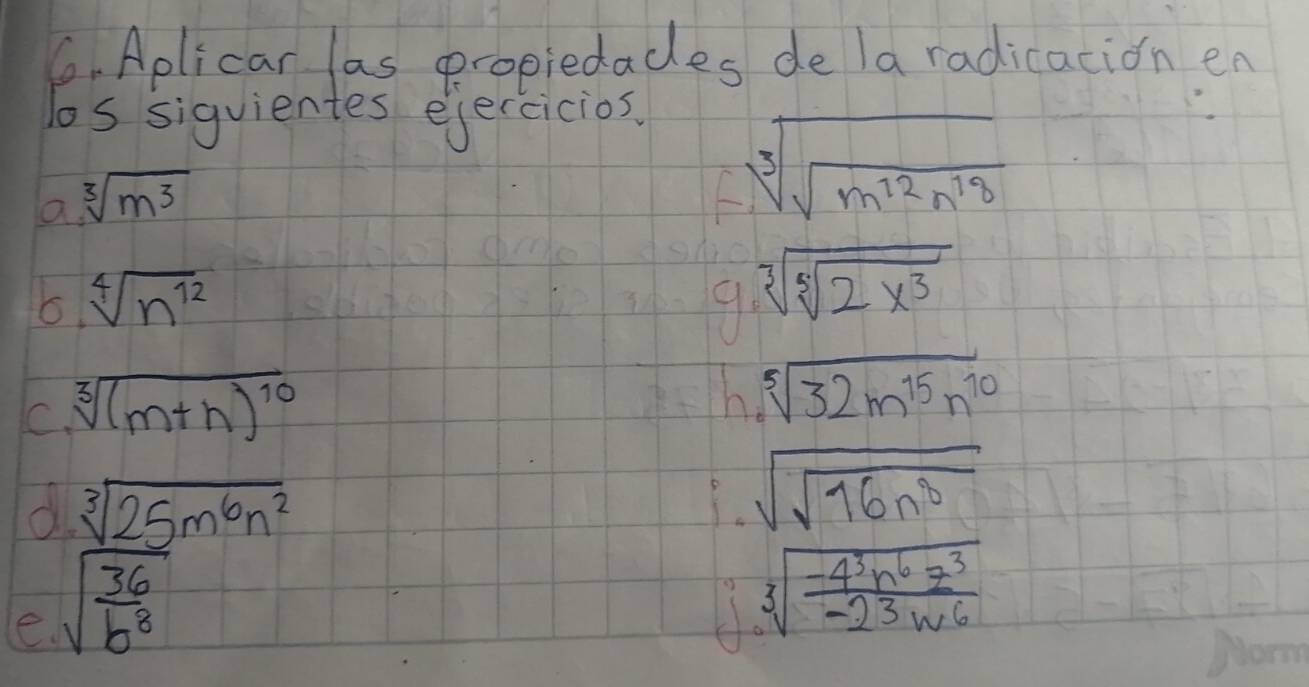 6. Aplicar las propiedades de la radicación en
los siguientes ejercicios.
a. ∛(m³)
b. ∜(n¹²)
c. ∛((m+n)¹⁰)
d. ∛(25m⁶n²)
e. √(36/b⁸)
f. ∛(√(m¹²n¹⁸))
g. ∛(⁵√(2x³))
h. ⁵√(32m¹⁵n¹⁰)
i. √(√(16n⁸))
j. ∛(-4³n⁶z³/-2³w⁶)
Norm